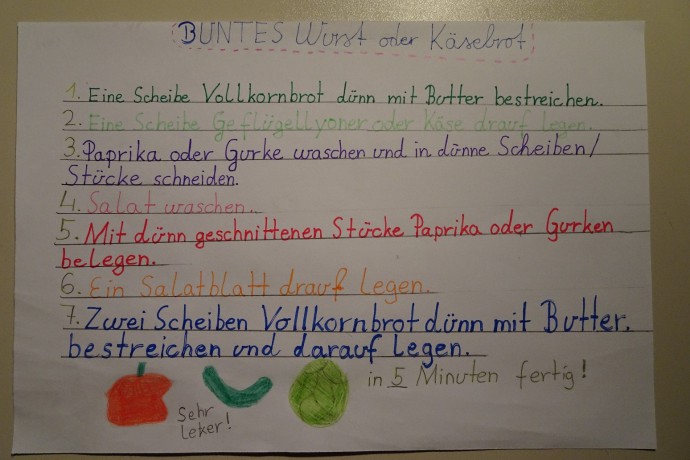 BUNTES Wurst oder Käsebrot
1. Eine Scheibe Vollkornbrot dünn mit Butter bestreichen.
2. Eine Scheibe Geflügellyoner oder Käse drauf legen.
3. Paprika oder Gurke waschen und in dünne Scheiben/
Stücke schneiden.
4. Salat waschen.
5. Mit dünn geschnittenen Stücke Paprika oder Gurken
belegen.
6. Ein Salatblatt drauf legen.
7. Zwei Scheiben Vollkornbrot dünn mit Butter.
bestreichen und darauf legen.
in 5 Minuten fertig!
Sehr
leker!